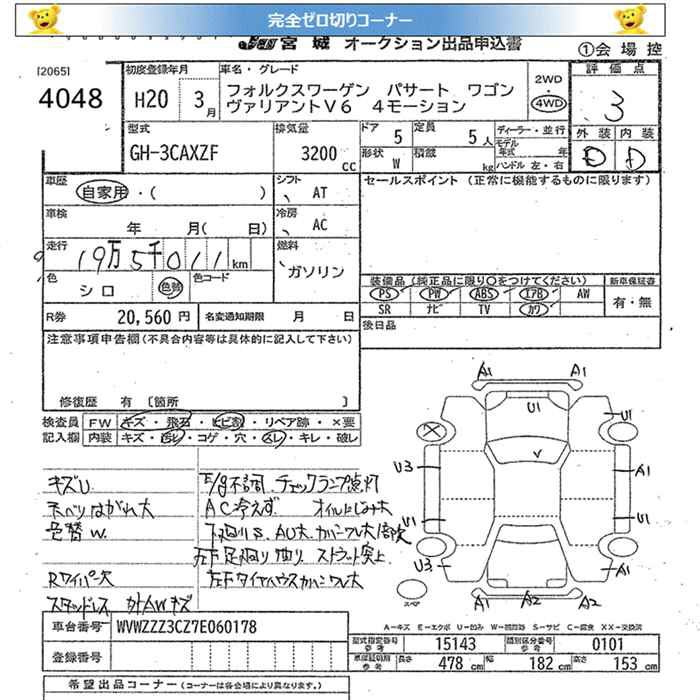 完全ゼロ切りコーナー
JU 宮城 オークション出品申込書
①会場控
[2065]
4048
初度登録年月
H20 3月
車名・グレード
フォルクスワーゲン パサート ワゴン
ヴァリアントV6 4モーション
2WD
4WD
評価点
3
外装 内装
D D
型式
GH-3CAXZF
排気量
3200 CC
ドア 5
定員 5人
形状 W
積載 kg
ディーラー・並行
モデル年式 年
ハンドル 左・右
車歴
自家用・( )
シフト AT
セールスポイント (正常に機能するものに限ります)
車検
年 月( 日)
冷房 AC
走行
19万5千011km
燃料
ガソリン
色
シロ 色替
色コード
装備品 (純正品に限り○をつけてください)
新車保証書
PS PW ABS エアB AW
SR ナビ TV カワ
有・無
R券 20,560円
名変通知期限 月 日
後日品
注意事項申告欄(不具合内容等は具体的に記入して下さい)
修復歴 有 〔箇所 〕
検査員
記入欄
FW キズ・飛石・ヒビ割・リペア跡・×要
内装 キズ・汚レ・コゲ・穴・スレ・キレ・破レ
A1 A1
U1
U1
U3
A1
U1
U1
U3
A1
A1 A2 A2
スペア
キズU
天ベリはがれ大
色替W.
Rワイパー欠
スタッドレス 社外AWキズ
E/g不調 チェックランプ点灯
AC冷えず オイルにじみ大
左下足廻り曲り ストラット突上
左下タイヤハウスカバーワレ大
A－キズ E－エクボ U－凹み W－補修跡 S－サビ C－腐食 XX－交換済
車台番号 WVWZZZ3CZ7E060178
登録番号
型式指定番号 参考 15143
類別区分番号 参考 0101
長さ 478 cm
幅 182 cm
高さ 153 cm
希望出品コーナー (コーナーは各会場により異なります)